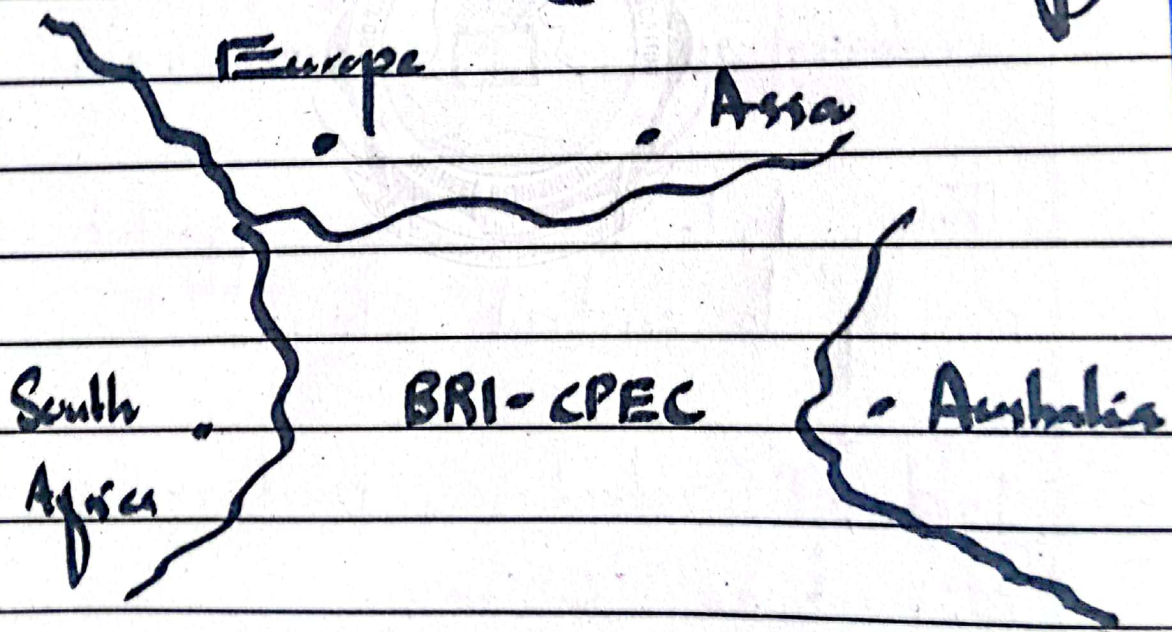 Europe
Assa
South
Africa
BRI-CPEC
Australia